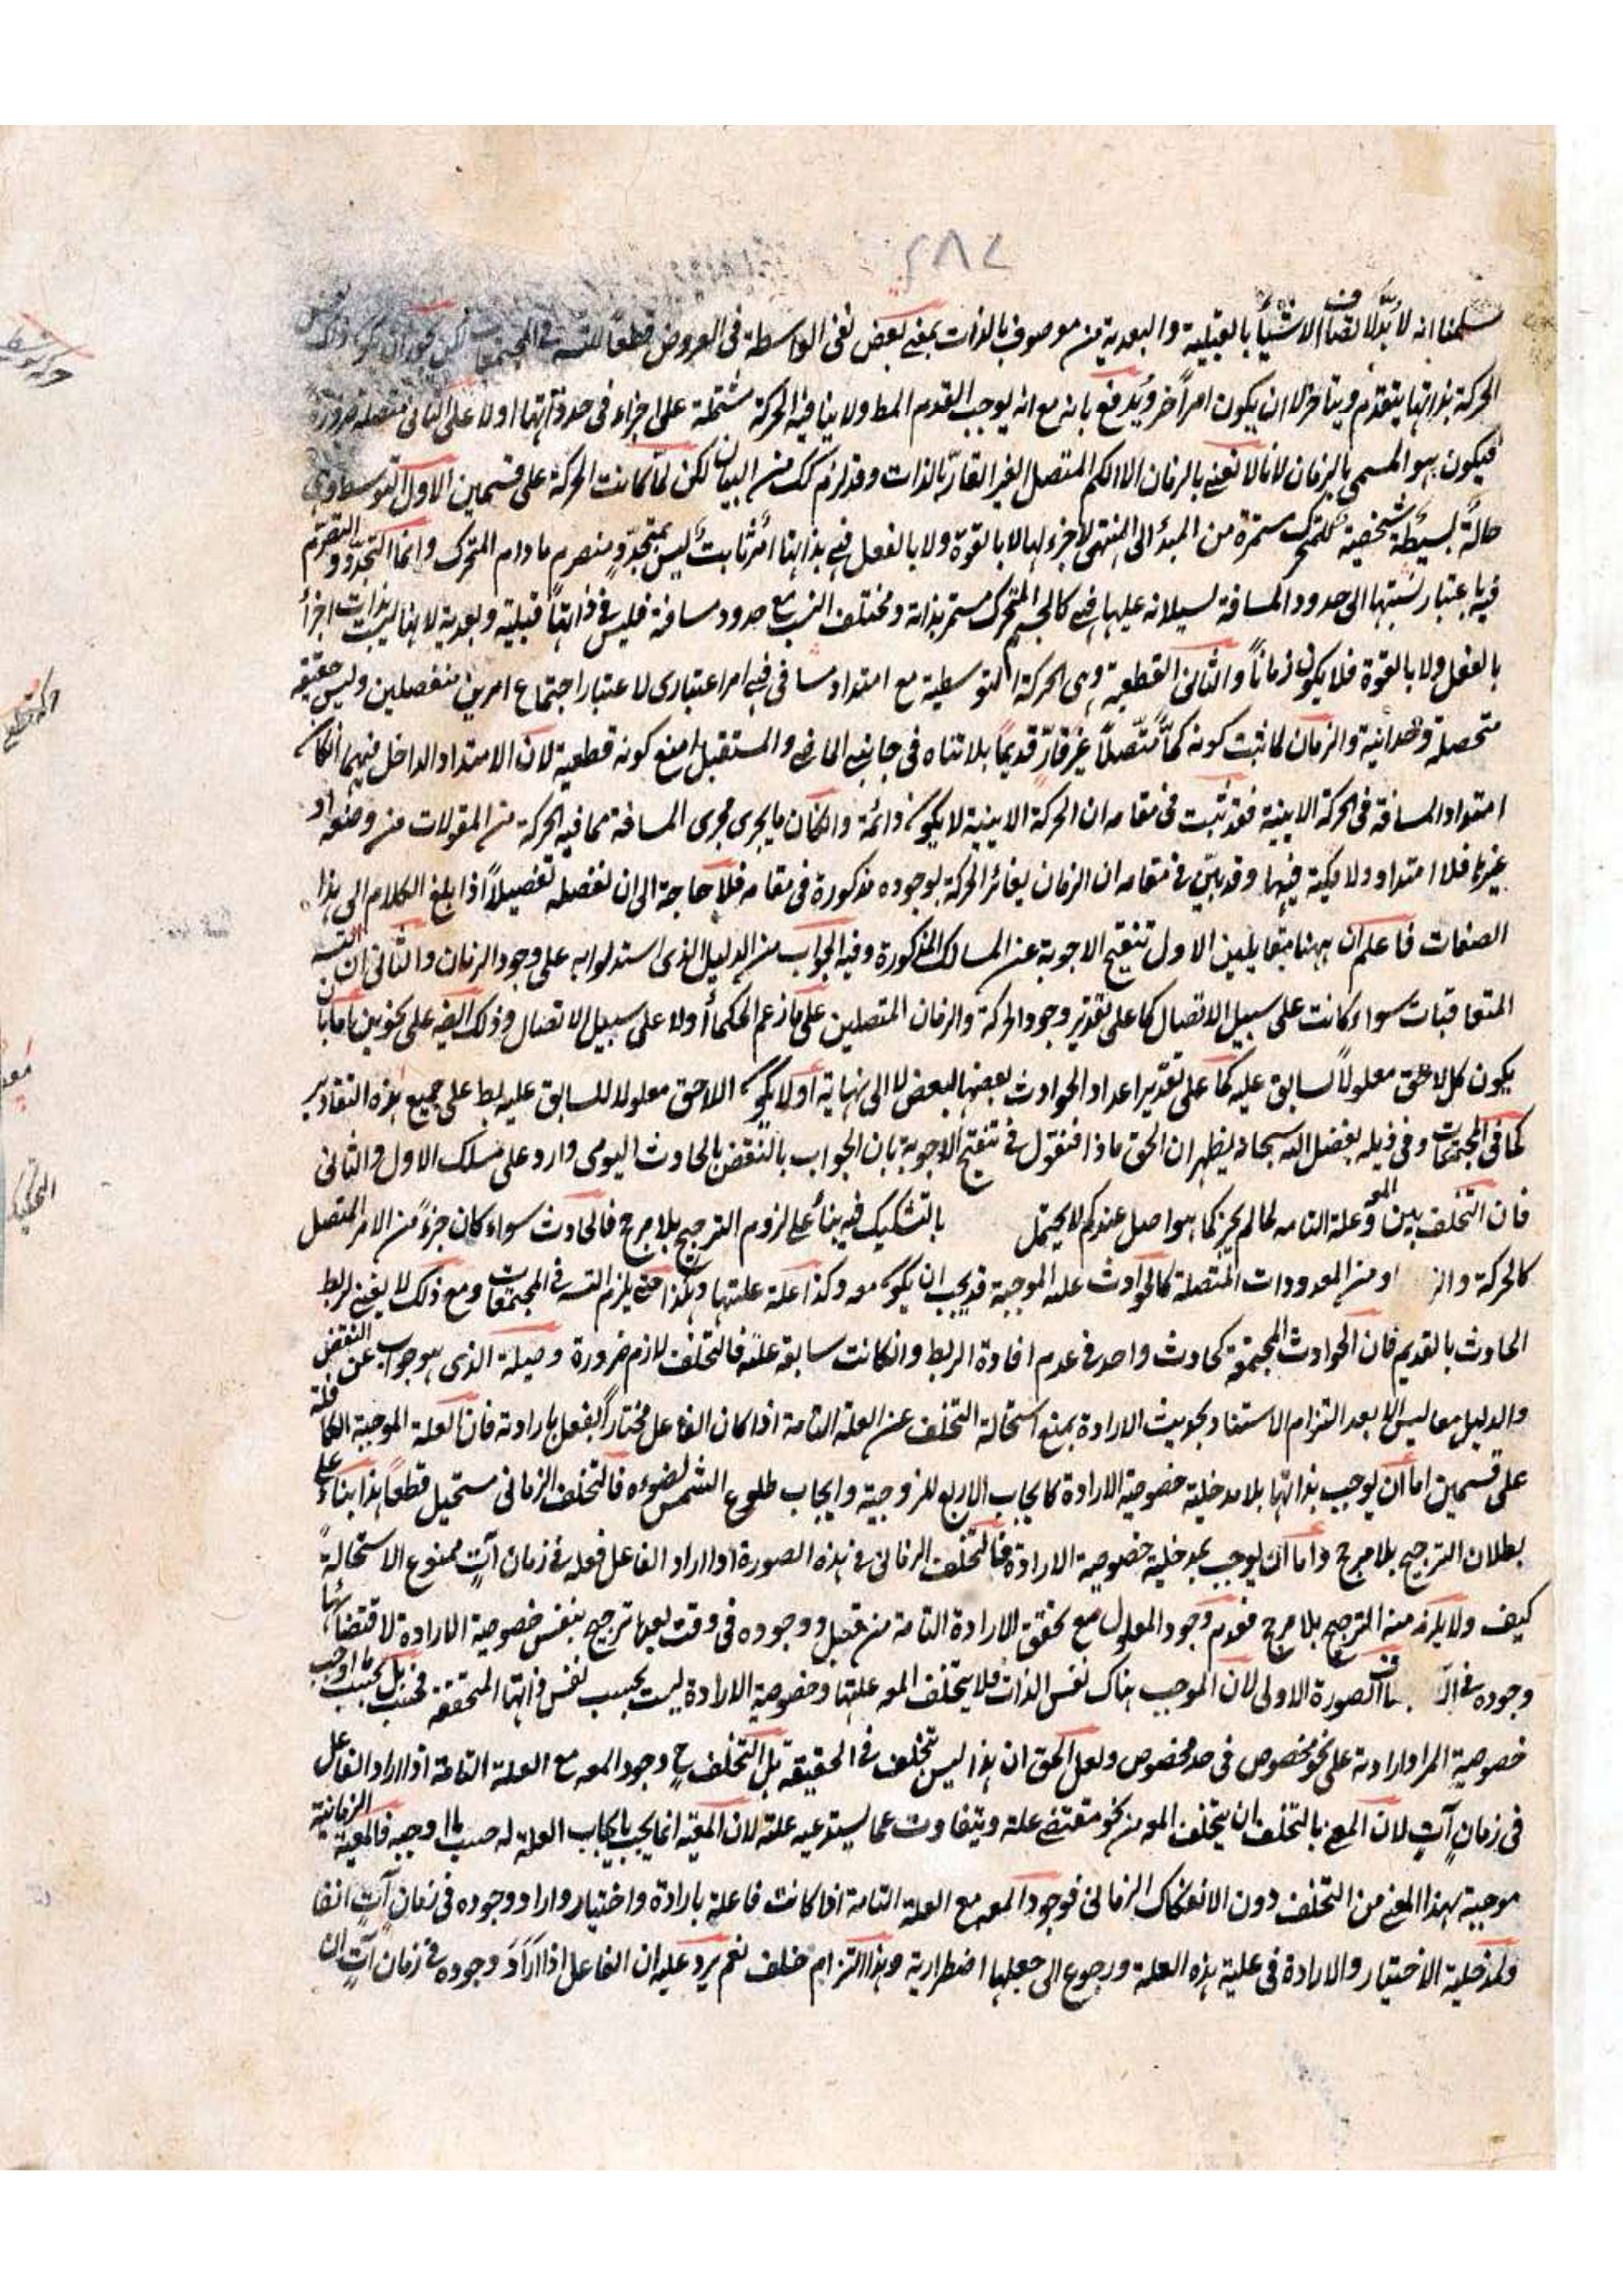 ٢٨٢
سلمنا انه لا بد لاتصاف الاشياء بالقبلية والبعدية من موصوف بالذات بمعنى نفى الواسطة فى العروض قطعا للتسـ فى المجتمعات لكن يجوز ان يكون ذلك
الحركة بذاتها يتقدم ويتاخر لا ان يكون امرا اخر ويدفع بانه مع انه يوجب القدم المط ولا ينافيه الحركة مشتملة على اجزاء فى حد ذاتها اولا على الثانى متصلة ضرورة
فيكون هو المسمى بالزمان لانا لا نعنى بالزمان الا الكم المتصل الغير القار بالذات وقد لزم كك من البيان لكن لما كانت الحركة على قسمين الاول التوسط وهى
حالة بسيطة شخصية للمتحرك مستمرة من المبدأ الى المنتهى لا جزء لها لا بالقوة ولا بالفعل فهى بذاتها امر ثابت ليس بمتجدد ومنصرم ما دام المتحرك وانما التجدد والتصرم
فيها باعتبار نسبتها الى حدود المسافة لسيلانه عليها فهى كالجسم المتحرك مستمر بذاته ومختلف النسب مع حدود مسافة فليس فى ذاتها قبلية وبعدية لانها ليست بذات اجزاء
بالفعل ولا بالقوة فلا يكون زمانا والثانى القطعية وهى الحركة التوسطية مع امتداد مسافى فهى امر اعتبارى لاعتبار اجتماع امرين منفصلين وليس حقيقة
متحصلة وحدانية والزمان لما ثبت كونه كما متصلا غير قار قديما بلا تناه فى جانبى الماضى والمستقبل امتنع كونه قطعية لان الامتداد الداخل فيها انكان
امتداد المسافة فى الحركة الاينية فقد ثبت فى مقامه ان الحركة الاينية لا يكون دائمة وانكان ما يجرى مجرى المسافة مما فيه الحركة من المقولات من وضع او
غيرها فلا امتداد ولا كمية فيها وقد بين فى مقامه ان الزمان يغائر الحركة بوجوده مذكورة فى مقامه فلا حاجة الى ان نفصله تفصيلا اذا بلغ الكلام الى هذا
الصفات فاعلم ان ههنا مقابلين الاول تنقيح الاجوبة عن المسالك المذكورة وفيه الجواب من الدليل الذى استدلوا به على وجود الزمان والثانى ان التسـ بين
المتعاقبات سواء كانت على سبيل الاتصال كما على تقدير وجود الحركة والزمان المتصلين على ما زعم الحكماء اولا على سبيل الاتصال وذلك ايضه على نحوين اما بان
يكون كل لاحق معلولا لسابق عليه كما على تقدير اعداد الحوادث بعضها لبعض لا الى نهاية او لا يكون اللاحق معلولا للسابق عليه بط على جميع هذه التقادير
كما فى المجتمعات وفى ذيله بفضل الله سبحانه يظهر ان الحق ماذا فنقول فى تنقيح الاجوبة بان الجواب بالنقض بالحادث اليومى وارد على مسلك الاول والثانى
فان التخلف بين المعـ وعلة التامه لما لم يجز كما هو اصل عندكم لا يحتمل بالتشكيك فيه بناء على لزوم الترجيح بلا مرجح فالحادث سواء كان جزء من الامر المتصل
كالحركة والز او من المعدودات المتصلة كالحوادث علة الموجبة قد يجب ان يكون معه وكذا علة علتها وهكذا حتى يلزم التسـ فى المجتمعات ومع ذلك لا يغنى لربط
الحادث بالقديم فان الحوادث المجتمعة كحادث واحد فى عدم افادة الربط وانكانت سابقة علته فالتخلف لازم ضرورة وحيلة الذى هو جواب عن النقض
والدليل معا ليس الا بعد التزام الاستناد بحديث الارادة بمنع استحالة التخلف عن العلة التامة اذا كان الفاعل مختارا يفعل بارادته فان العلة الموجبة الكافية
على قسمين اما ان يوجب بذاتها بلا مدخلية خصوصية الارادة كايجاب الاربع للزوجية وايجاب طلوع الشمس لضوءه فالتخلف الزمانى مستحيل قطعا هذا بناء على
بطلان الترجيح بلا مرجح واما ان يوجب بمدخلية خصوصية الارادة فالتخلف الزمانى فى هذه الصورة اذا اراد الفاعل فعله فى زمان آت ممنوع الاستحالة
كيف ولا يلزم منه الترجيح بلا مرجح فعدم وجود المعلول مع تحقق الارادة التامة من قبل ووجوده فى وقت بعدها ترجيح بنفس خصوصية الارادة لاقتضائها
وجوده فى الصورة الاولى لان الموجب هناك نفس الذات فلا يتخلف المعـ علتها وخصوصية الارادة ليست بحسب نفس ذاتها المتحققة فحسب بل بحسب ما اوجب
خصوصية المراد ارادته على نحو مخصوص فى حد مخصوص ولعل الحق ان هذا ليس تخلف فى الحقيقة بل التخلف ح وجود المعـ مع العلة التامة اذا اراد الفاعل
فى زمان آت لان المعنى بالتخلف ان يتخلف المعـ من نحو مقتضى علة ويتفاوت عما يستدعيه علته لان المعية انما يجب بايجاب العلة له حسب ما اوجبه فالمعية الزمانية
موجبة بهذا المعنى من التخلف دون الانفكاك الزمانى فوجود المعـ مع العلة التامة اذا كانت فاعلة بارادة واختيار واراد وجوده فى زمان آت انتفاء
ولمدخلية الاختيار والارادة فى علية هذه العلة ورجوع الى جعلها اضطرارية وهذا التزام خلف نعم يرد عليه ان الفاعل اذا اراد وجوده فى زمان آت ان